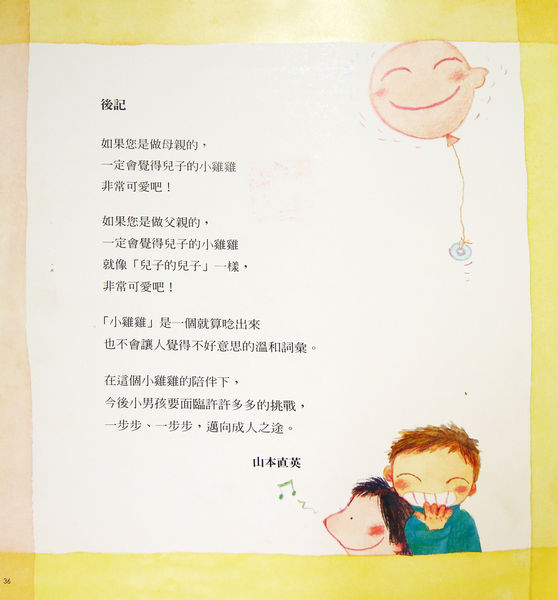 後記
如果您是做母親的，
一定會覺得兒子的小雞雞
非常可愛吧！
如果您是做父親的，
一定會覺得兒子的小雞雞
就像「兒子的兒子」一樣，
非常可愛吧！
「小雞雞」是一個就算唸出來
也不會讓人覺得不好意思的溫和詞彙。
在這個小雞雞的陪伴下，
今後小男孩要面臨許許多多的挑戰，
一步步、一步步，邁向成人之途。
山本直英
36